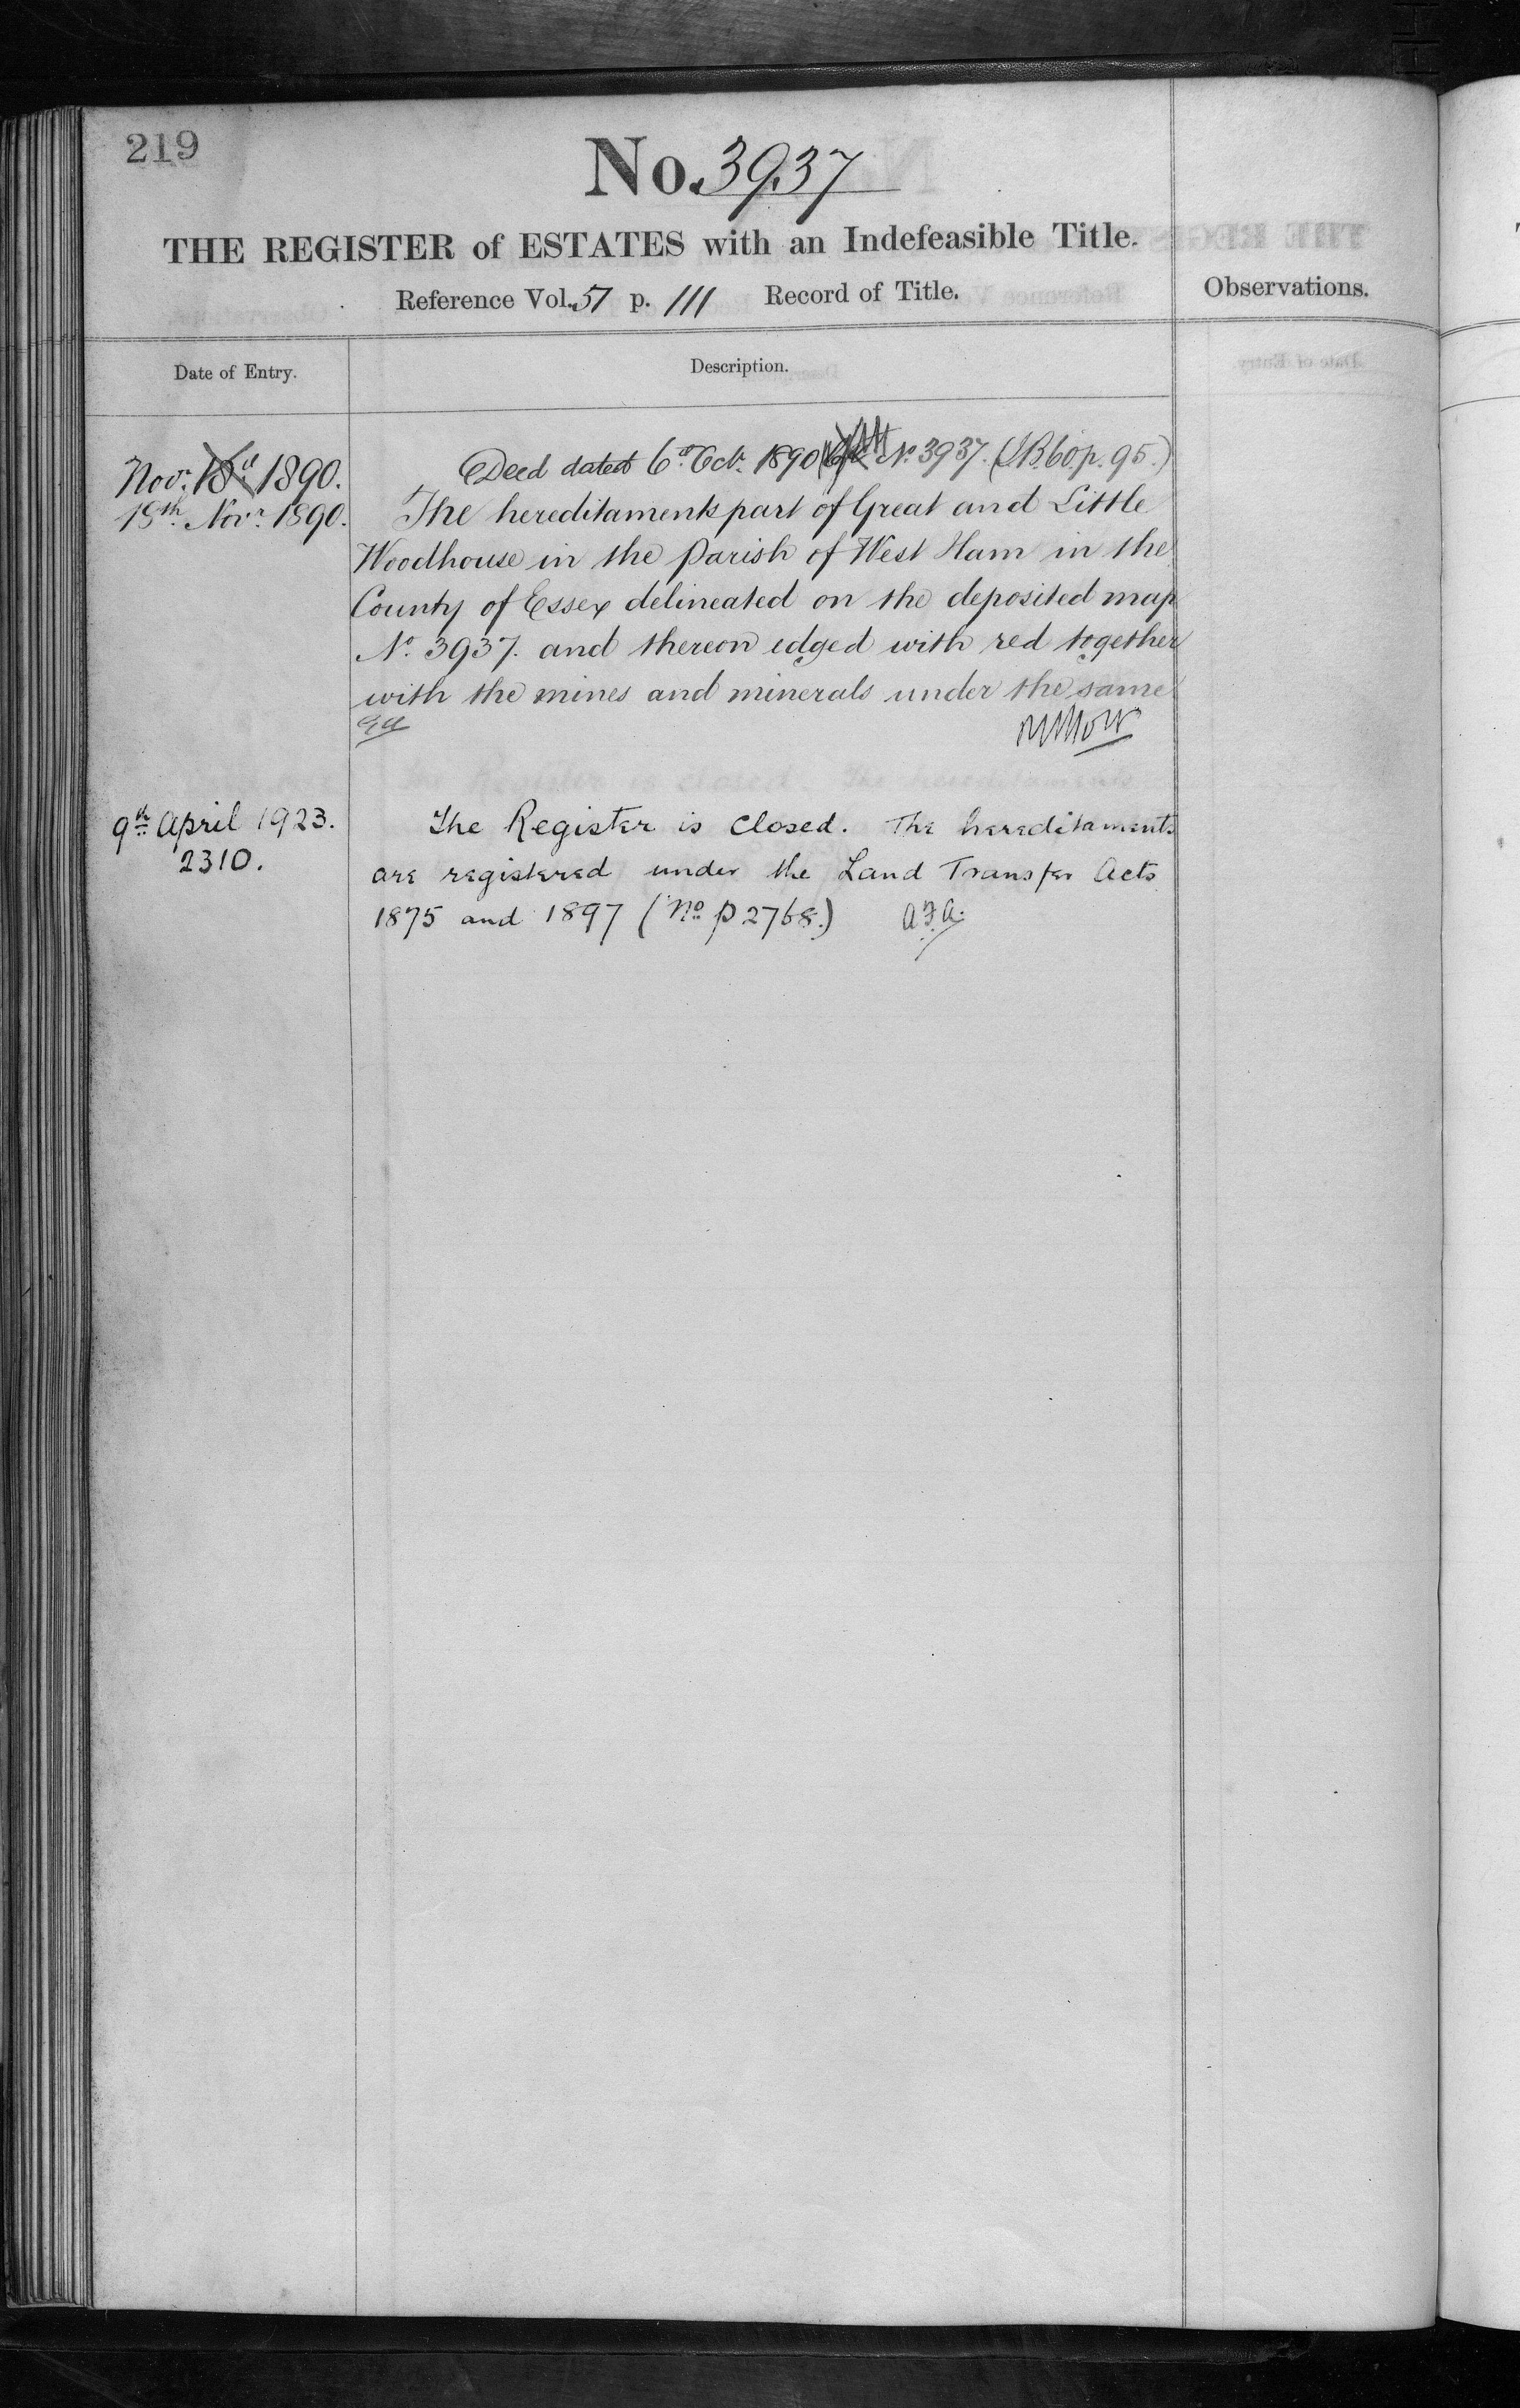 219
No. 3937
THE REGISTER of ESTATES with an Indefeasible Title.
Reference Vol. 57 p. 111 Record of Title.
Observations.
Date of Entry.
Description.
Novr. 1890.
Deed dated 6th Octr. 1890 No. 3937. (I.B. 60 p. 95.)
18th Novr. 1890.
The hereditaments part of Great and Little
Woodhouse in the Parish of West Ham in the
County of Essex delineated on the deposited map
No. 3937. and thereon edged with red together
with the mines and minerals under the same
9th April 1923.
The Register is closed. The hereditaments
2310.
are registered under the Land Transfer Acts
1875 and 1897 (No P 2768.) A.F.A.